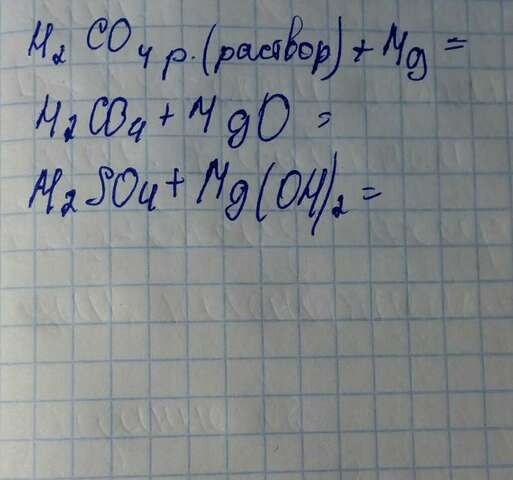 H₂CO₄ р.(раствор) + Mg =
H₂CO₄ + MgO =
H₂SO₄ + Mg(OH)₂ =